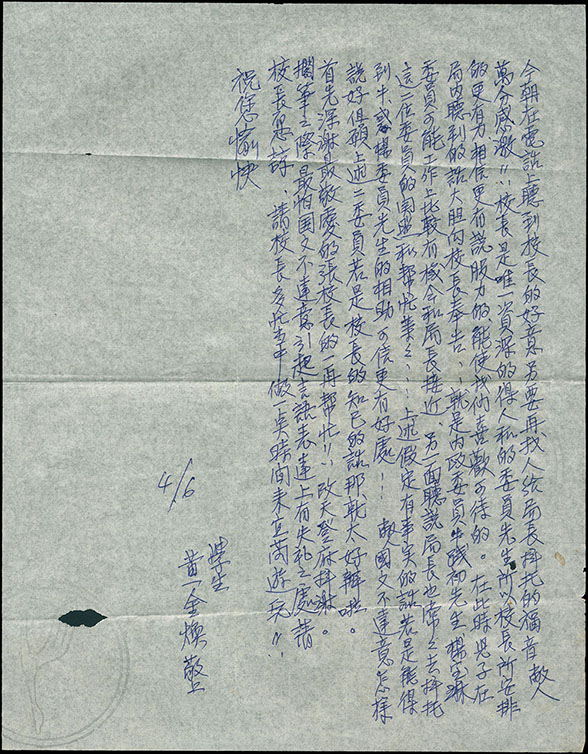 今朝在電話上聽到校長的好意另要再找人給局長拜托的福音 敝人
萬分感激!!校長是唯一資深的得人和的委員先生所以校長所安排
的更有力相信更有說服力的能使我們喜歡可待的。在此時兒子在
局內聽到的話大胆向校長奉告、就是內政委員牛踐初先生 楊宝琳
委員可能工作上比較有機会和局長接近、另一面聽說局長也常之去拜托
這二位委員的関照和幫忙業之、上述假定有事実的話若是能得
到牛或楊委員先生的相助可信更有好處! 敝國文不達意怎樣
說好俱願上述二委員若是校長的知已的話那就太好辦啦。
首先深謝最敬愛的張校長的一再幫忙!!改天登府拜謝。
擱筆之際最怕国文不達意引起言語表達上有失礼之處請
校長原諒、請校長多忙当中做一臭時间来立苪遊玩!!
祝您愉快
學生
黃金煥敬上
4/6